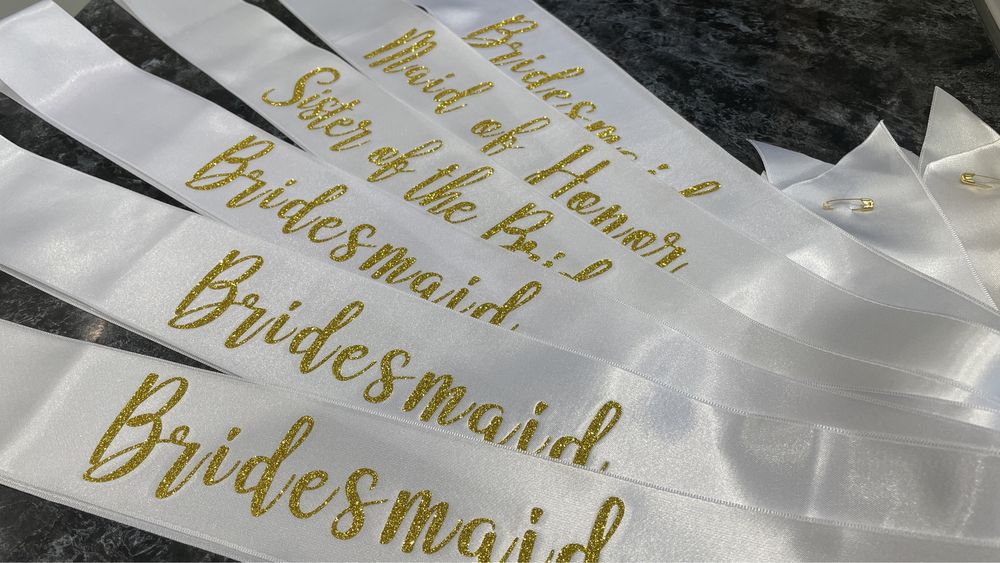 Bridesmaid
Maid of Honor
Sister of the Bride
Bridesmaid
Bridesmaid
Bridesmaid